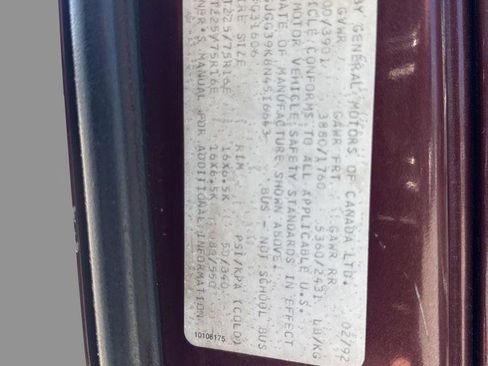 BY GENERAL MOTORS OF CANADA LTD.
02/92
GVWR GAWR FRT GAWR RR
00/3901 3880/1760 5360/2431 LB/KG
ICLE CONFORMS TO ALL APPLICABLE U.S.
MOTOR VEHICLE SAFETY STANDARDS IN EFFECT
DATE OF MANUFACTURE SHOWN ABOVE.
JGG39K8N4516663 BUS - NOT SCHOOL BUS
IRE SIZE RIM PSI/KPA (COLD)
T225/75R16E 16X6.5K 50/340
T225/75R16E 16X6.5K 80/550
NER'S MANUAL FOR ADDITIONAL INFORMATION
10108175